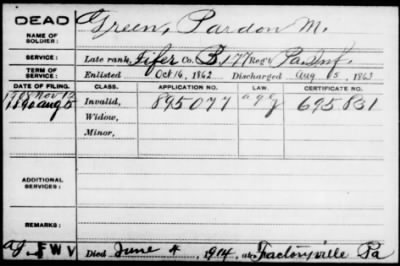 DEAD
Green, Pardon M.
NAME OF
SOLDIER:
SERVICE:
Late rank, Fifer Co. B, 177 Reg't Pa Inf.
TERM OF
SERVICE:
Enlisted Oct 16, 1862 Discharged Aug 5, 1863
DATE OF FILING. CLASS. APPLICATION NO. LAW. CERTIFICATE NO.
1890 Aug 5 Invalid, 895077 695831
Widow,
Minor,
ADDITIONAL
SERVICES:
REMARKS:
Died June 4, 1914, at Factoryville Pa